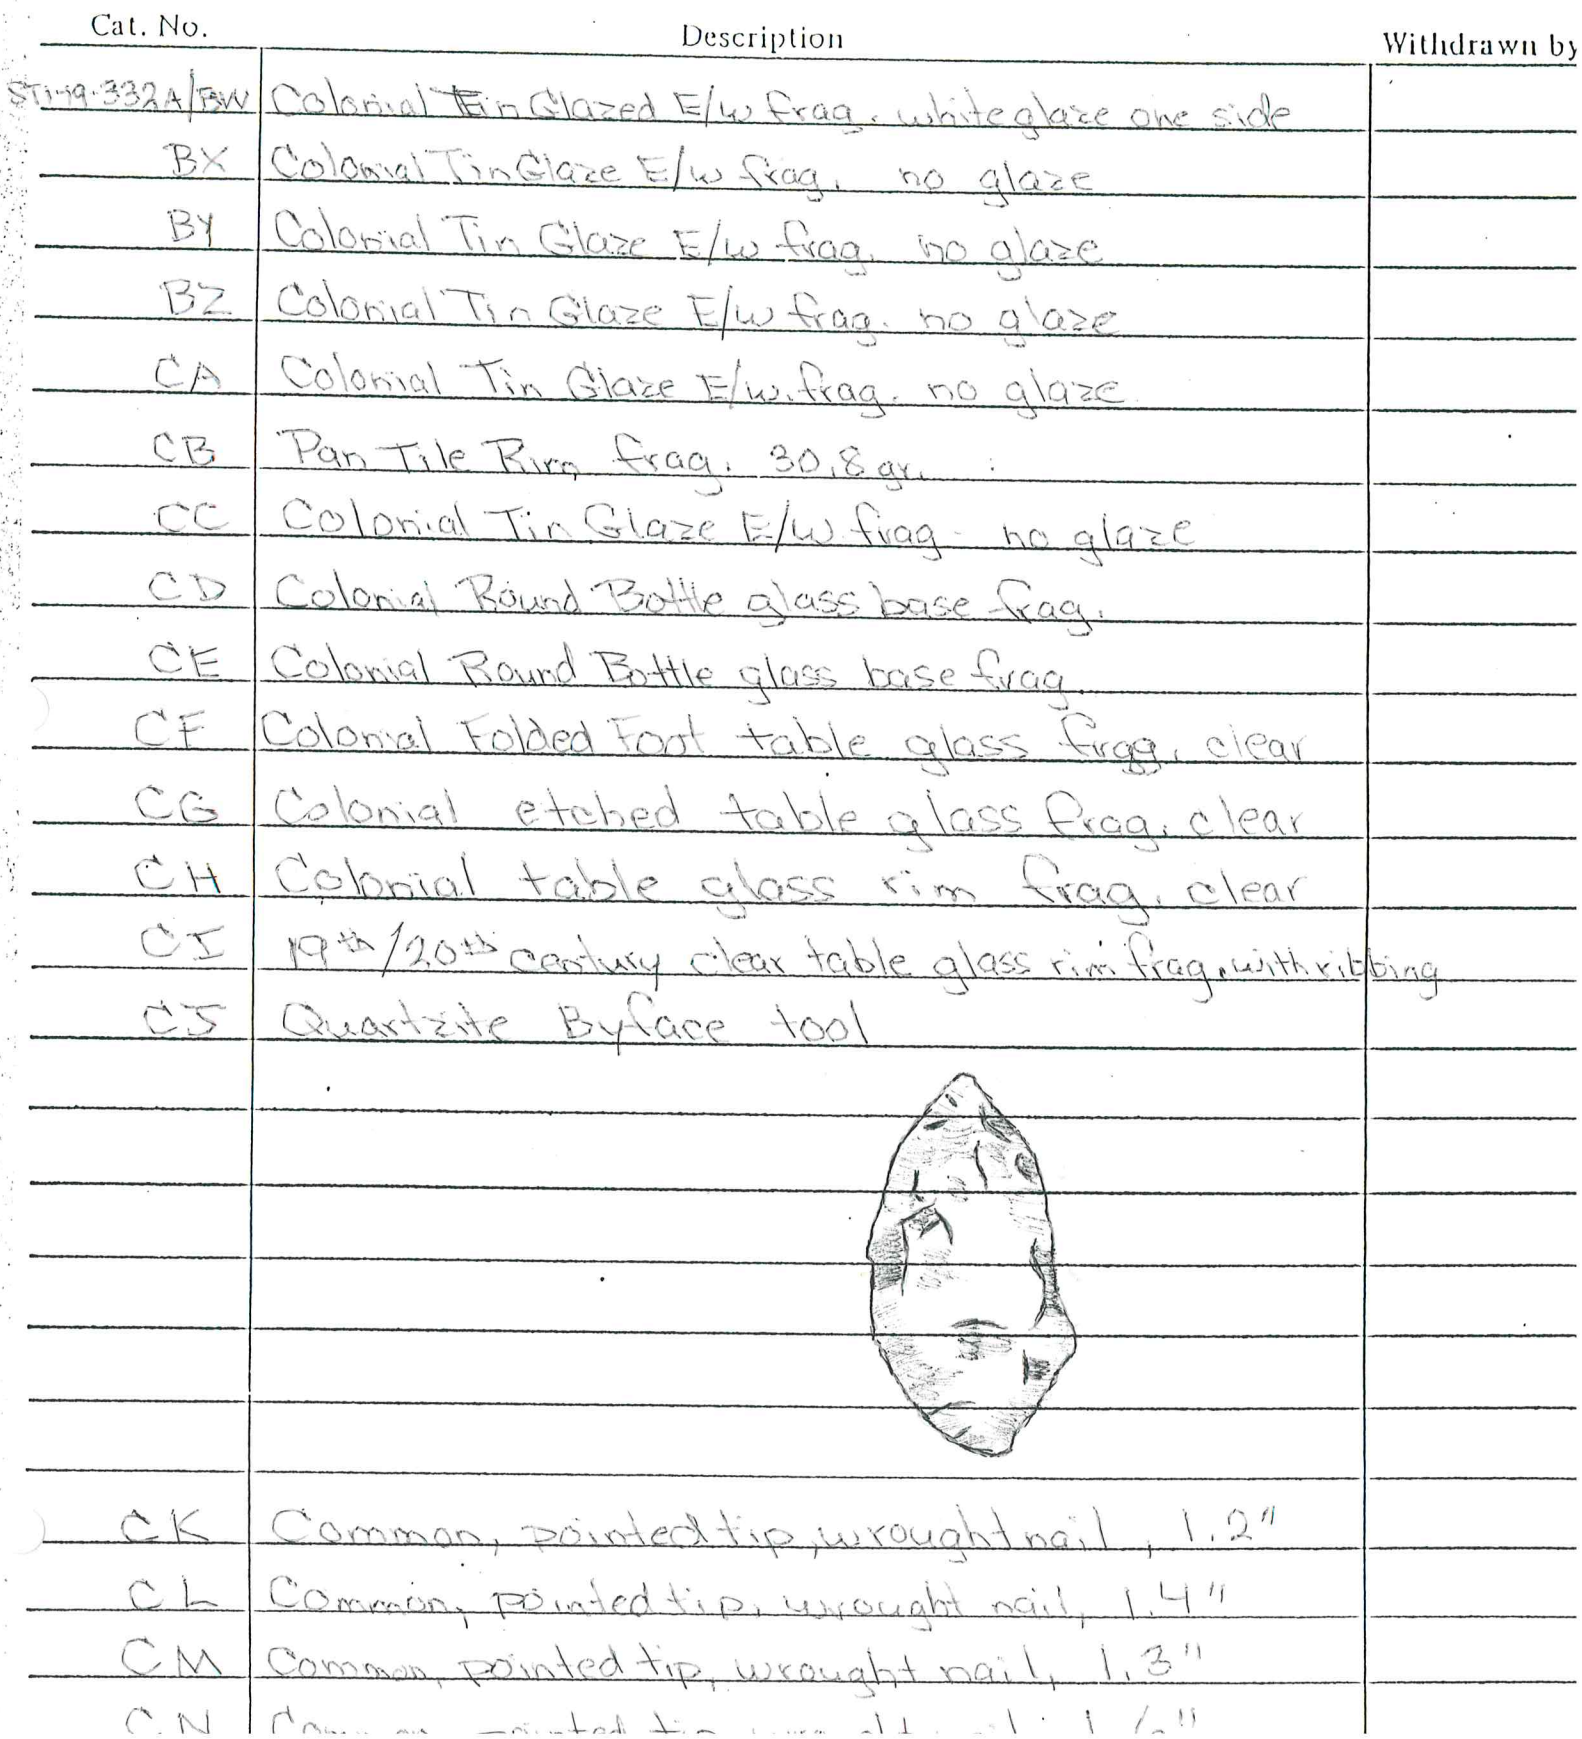 Cat. No. Description Withdrawn by
332A/BW Colonial Tin Glazed E/w frag. white glaze one side
BX Colonial Tin Glaze E/w frag. no glaze
BY Colonial Tin Glaze E/w frag. no glaze
BZ Colonial Tin Glaze E/w frag. no glaze
CA Colonial Tin Glaze E/w. frag. no glaze
CB Pan Tile Rim frag. 30.8 gr.
CC Colonial Tin Glaze E/w frag. no glaze
CD Colonial Round Bottle glass base frag.
CE Colonial Round Bottle glass base frag.
CF Colonial Folded Foot table glass frag. clear
CG Colonial etched table glass frag. clear
CH Colonial table glass rim frag. clear
CI 19th/20th century clear table glass rim frag. with ribbing
CJ Quartzite Byface tool
CK Common, pointed tip, wrought nail, 1.2"
CL Common, pointed tip, wrought nail, 1.4"
CM Common, pointed tip, wrought nail, 1.3"
CN